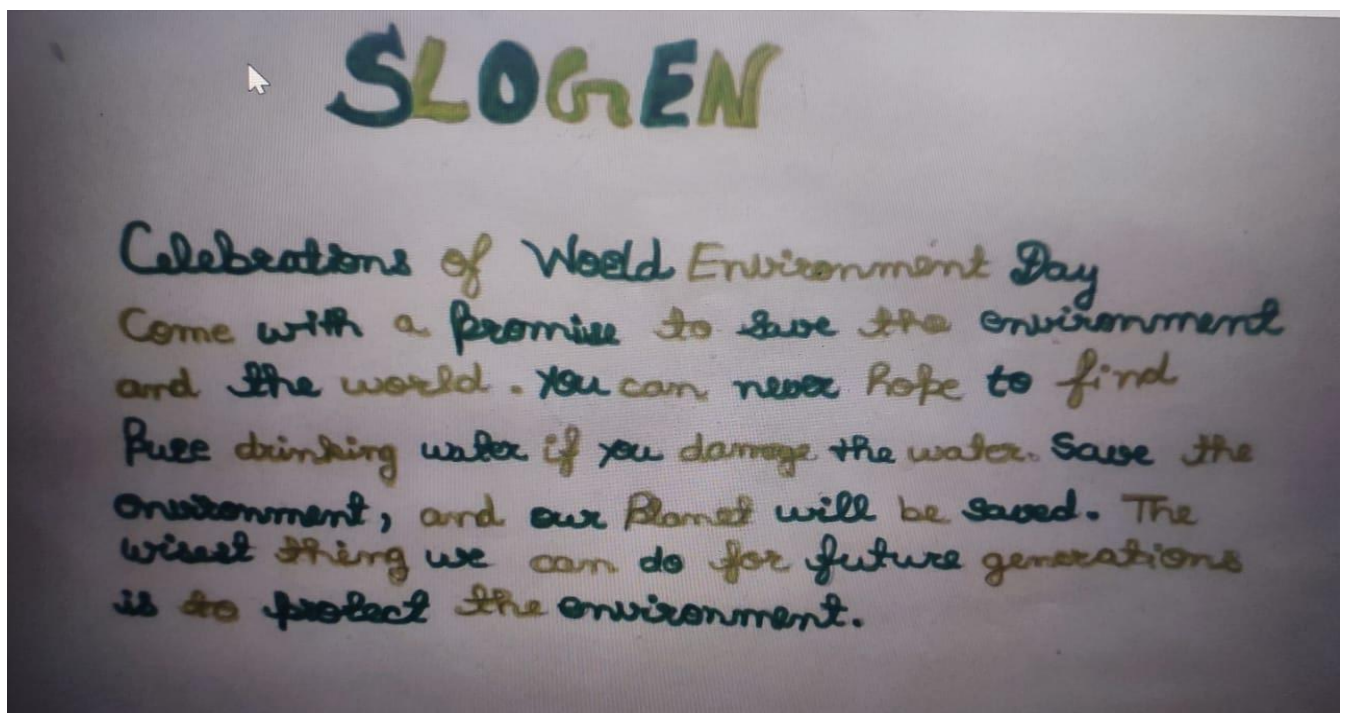 SLOGEN
Celebrations of World Environment Day
Come with a Promise to Save the environment
and the world. You can never hope to find
Pure drinking water if you damage the water. Save the
environment, and our Planet will be saved. The
wisest thing we can do for future generations
is to protect the environment.